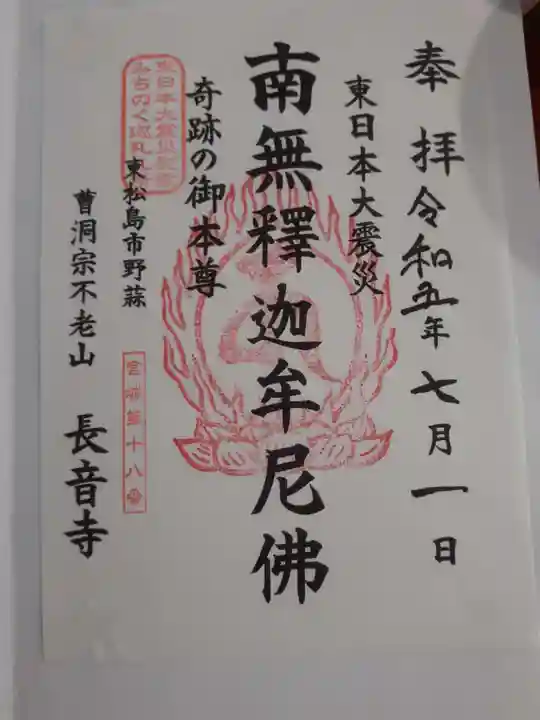 奉拝 令和五年 七月一日
東日本大震災
南無釋迦牟尼佛
奇跡の御本尊
東日本大震災
みちのく巡礼
東松島市野蒜
宮城第十八番
曹洞宗不老山 長音寺